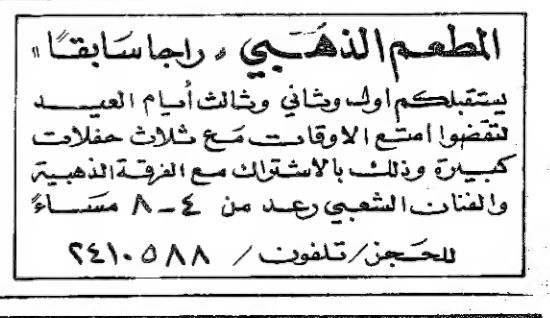 المطعم الذهبي "راجا سابقاً"
يستقبلكم اول وثاني وثالث أيام العيد
لتقضوا امتع الاوقات مع ثلاث حفلات
كبيرة وذلك بالاشتراك مع الفرقة الذهبية
والفنان الشعبي رعد من ٤-٨ مساءً
للحجز/تلفون/ ٢٤١٠٥٨٨